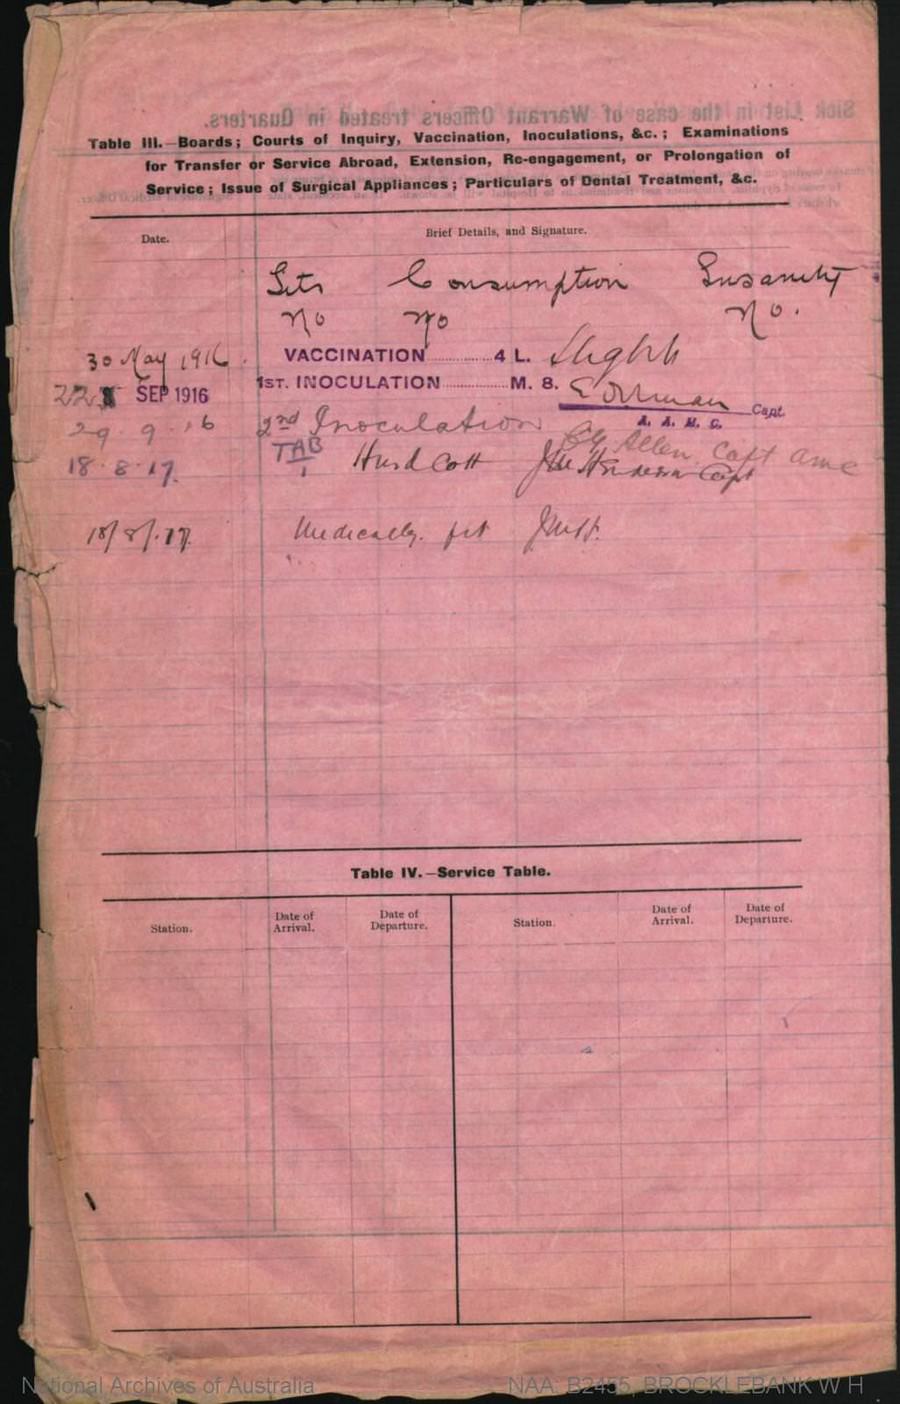 Sick List in the case of Warrant Officers treated in Quarters.
Table III.—Boards; Courts of Inquiry, Vaccination, Inoculations, &c.; Examinations
for Transfer or Service Abroad, Extension, Re-engagement, or Prolongation of
Service; Issue of Surgical Appliances; Particulars of Dental Treatment, &c.
Date. Brief Details, and Signature.
Fits Consumption Insanity
No No No.
30 May 1916. VACCINATION 4 L.
22 SEP 1916 1ST. INOCULATION M. 8.
Capt.
A. A. M. C.
29.9.16 2nd Inoculation Allen Capt AMC
18.8.17. TAB 1 Hurdcott Henderson Capt
18/8/17. Medically fit JMH.
Table IV.—Service Table.
Station. Date of Arrival. Date of Departure. Station. Date of Arrival. Date of Departure.
National Archives of Australia NAA: B2455, BROCKLEBANK W H